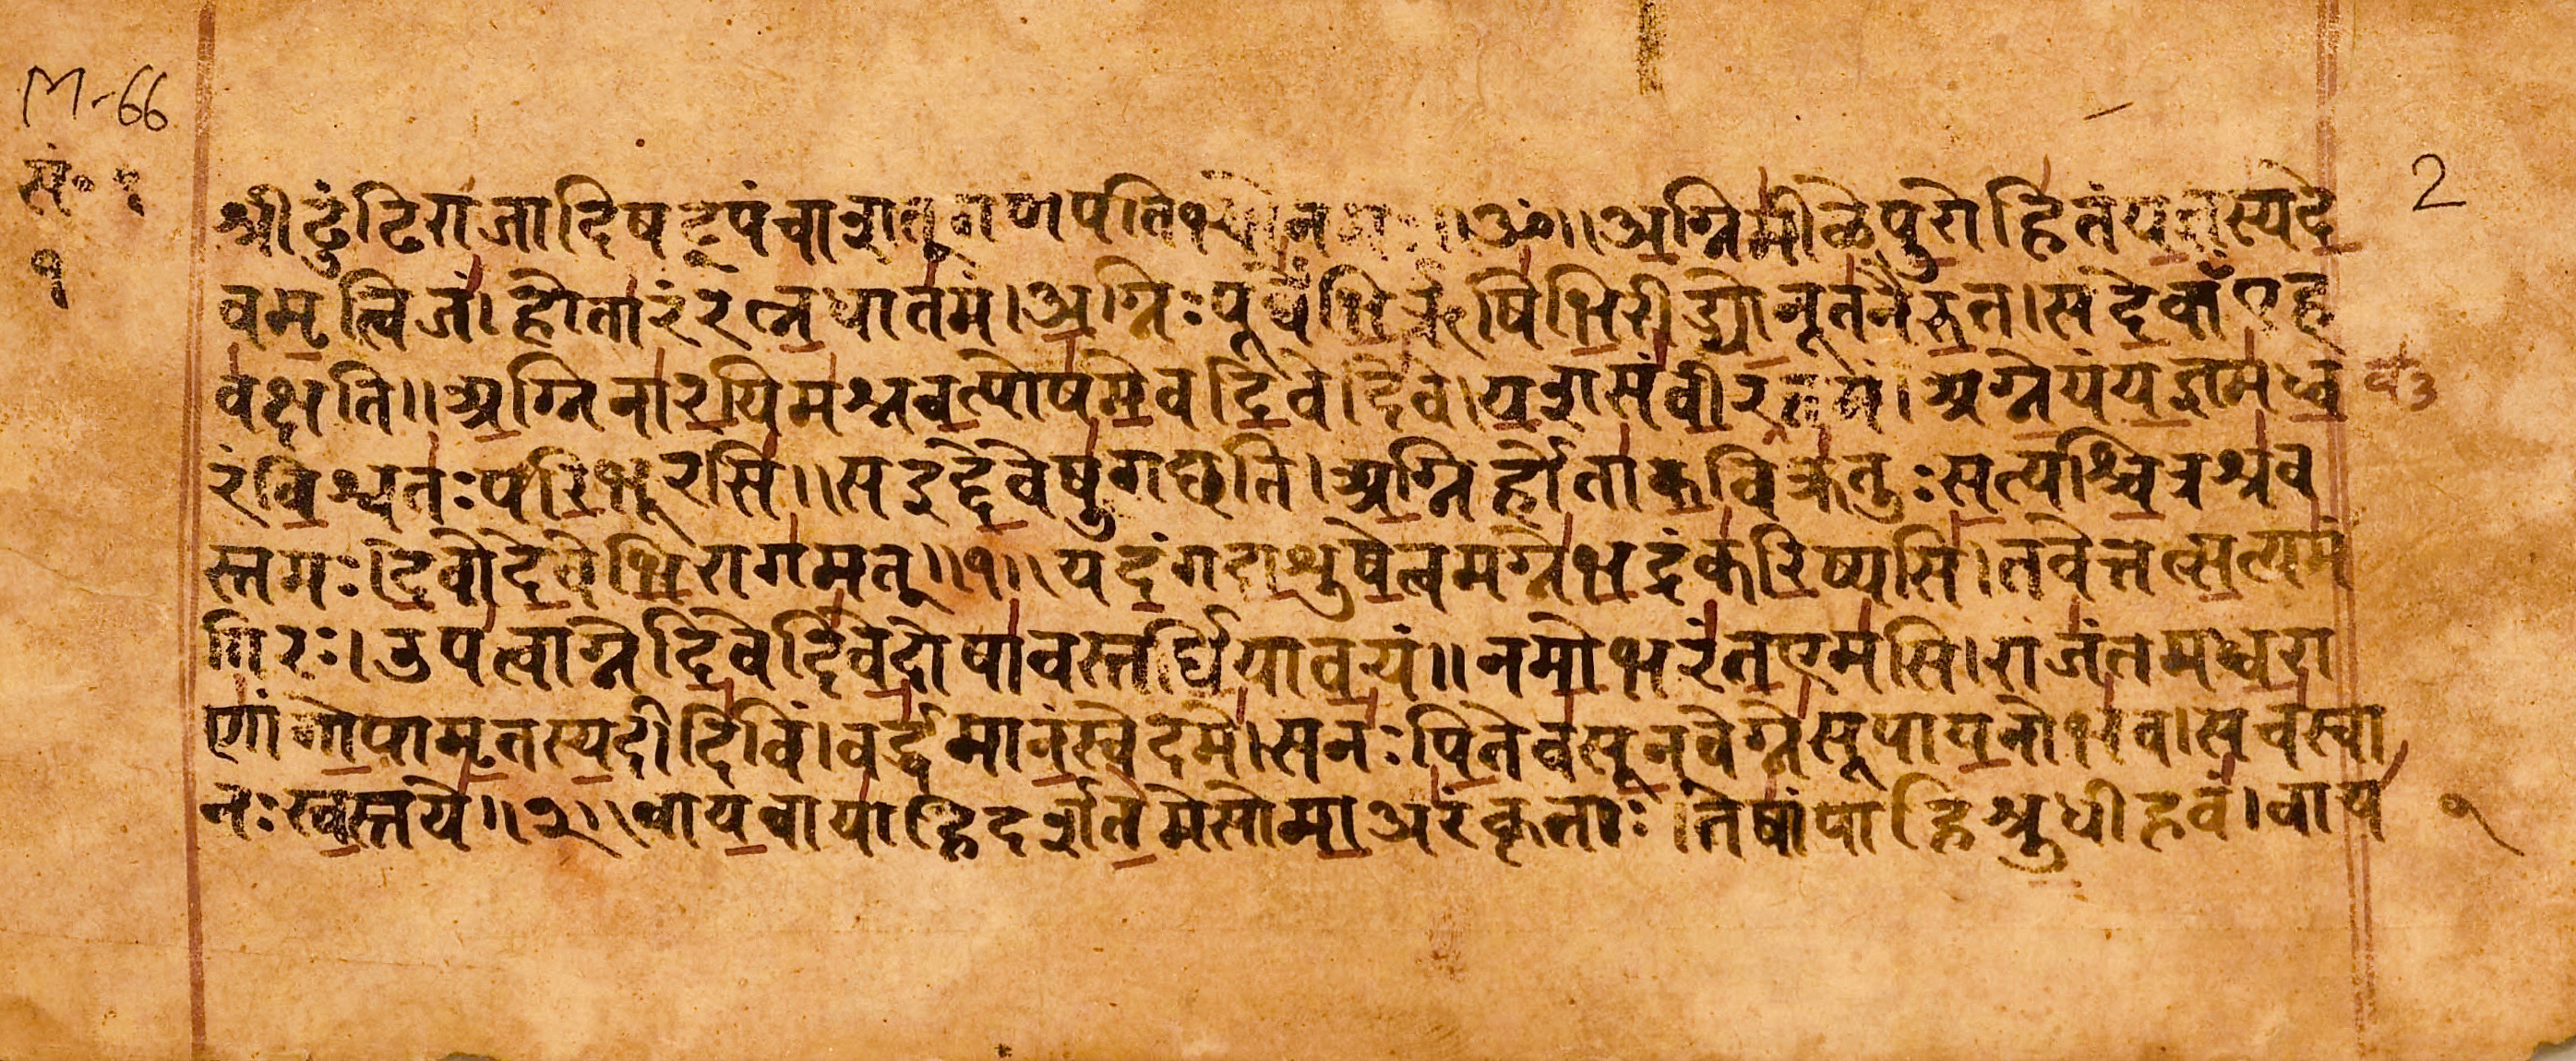 M-66
सं॰ १
2
१
श्रीढुंढिराजादिषट्पंचाशत्गणपतिभ्योनमः॥ॐ॥अ॒ग्निमी॑ळेपु॒रोहि॑तंय॒ज्ञस्य॑दे॒
वमृ॒त्विजं॑।होता॑रंरत्न॒धात॑मं।अ॒ग्निःपूर्वे॑भि॒र्ऋषि॑भि॒रीड्यो॒नूत॑नैरु॒त।सदे॒वाँएह
व॑क्षति॥अ॒ग्निना॑र॒यिम॑श्नव॒त्पोष॑मे॒वदि॒वेदि॑वे।य॒शसं॑वी॒रव॑त्तमं।अग्ने॒यंय॒ज्ञम॑ध्व॒
रंवि॒श्वतः॑परि॒भूरसि॑॥सइद्दे॒वेषु॑गछति।अ॒ग्निर्होता॑क॒विक्र॑तुःस॒त्यश्चि॒त्रश्र॑व
स्तमः।दे॒वोदे॒वेभि॒राग॑मत्॥१॥यदं॒गदा॒शुषे॒त्वमग्ने॑भ॒द्रंक॑रि॒ष्यसि॑।तवेत्तत्स॒त्यमं॑
गिरः।उप॑त्वाग्नेदि॒वेदि॑वे॒दोषा॑वस्तर्द्धि॒याव॒यं॥नमो॒भरं॑त॒एम॑सि।राजं॑तमध्व॒रा
णां॑गो॒पामृ॒तस्य॒दीदि॑विं।वर्द्ध॑मानं॒स्वेदमे॑।सनः॑पि॒तेव॑सू॒नवेग्ने॑सूपाय॒नोभ॑व।सच॑स्वा
नःस्व॒स्तये॑॥२॥वाय॒वाया॑हिदर्शत॒मेसोमा॒अरं॑कृताः।तेषां॑पाहिश्रु॒धीहवं॑।वाय॑
१